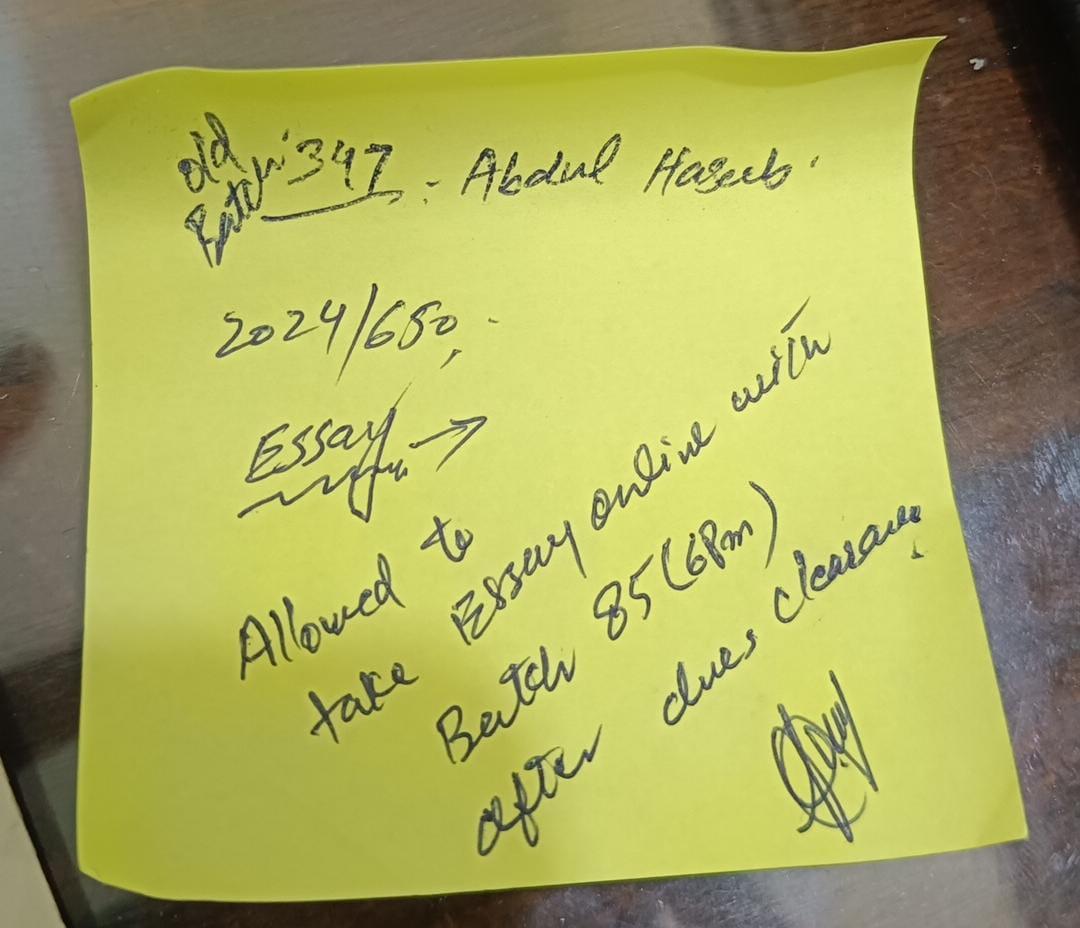 old Batch 347. Abdul Haseeb.
2024/680.
Essay →
Allowed to
take Essay online with
Batch 85 (6Pm)
after dues clearance.